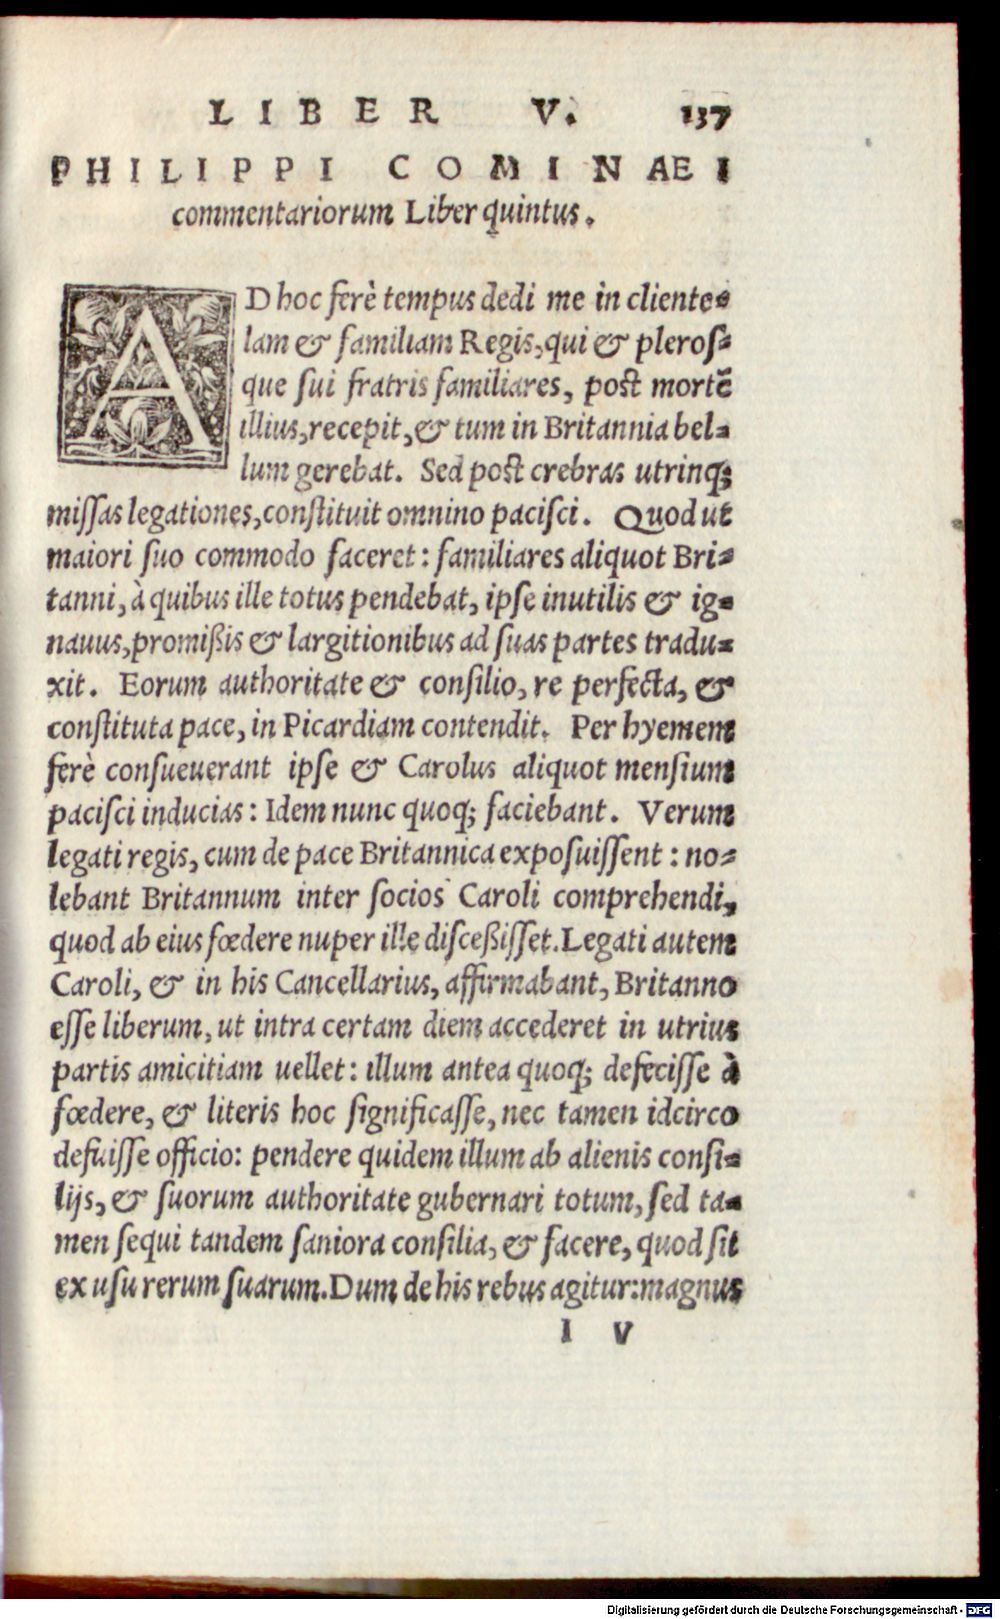 LIBER V. 137
PHILIPPI COMINAEI
commentariorum Liber quintus.
AD hoc ferè tempus dedi me in cliente-
lam & familiam Regis, qui & pleroſ-
que ſui fratris familiares, poſt mortē
illius, recepit, & tum in Britannia bel-
lum gerebat. Sed poſt crebras utrinq;
miſſas legationes, conſtituit omnino paciſci. Quod ut
maiori ſuo commodo faceret: familiares aliquot Bri-
tanni, à quibus ille totus pendebat, ipſe inutilis & ig-
nauus, promißis & largitionibus ad ſuas partes tradu-
xit. Eorum authoritate & conſilio, re perfecta, &
conſtituta pace, in Picardiam contendit. Per hyemem
ferè conſueuerant ipſe & Carolus aliquot menſium
paciſci inducias: Idem nunc quoq; faciebant. Verum
legati regis, cum de pace Britannica expoſuiſſent: no-
lebant Britannum inter ſocios Caroli comprehendi,
quod ab eius fœdere nuper ille diſceßiſſet. Legati autem
Caroli, & in his Cancellarius, affirmabant, Britanno
eſſe liberum, ut intra certam diem accederet in utrius
partis amicitiam uellet: illum antea quoq; defeciſſe à
fœdere, & literis hoc ſignificaſſe, nec tamen idcirco
defuiſſe officio: pendere quidem illum ab alienis conſi-
lijs, & ſuorum authoritate gubernari totum, ſed ta-
men ſequi tandem ſaniora conſilia, & facere, quod ſit
ex uſu rerum ſuarum. Dum de his rebus agitur: magnus
I V
Digitalisierung gefördert durch die Deutsche Forschungsgemeinschaft - DFG